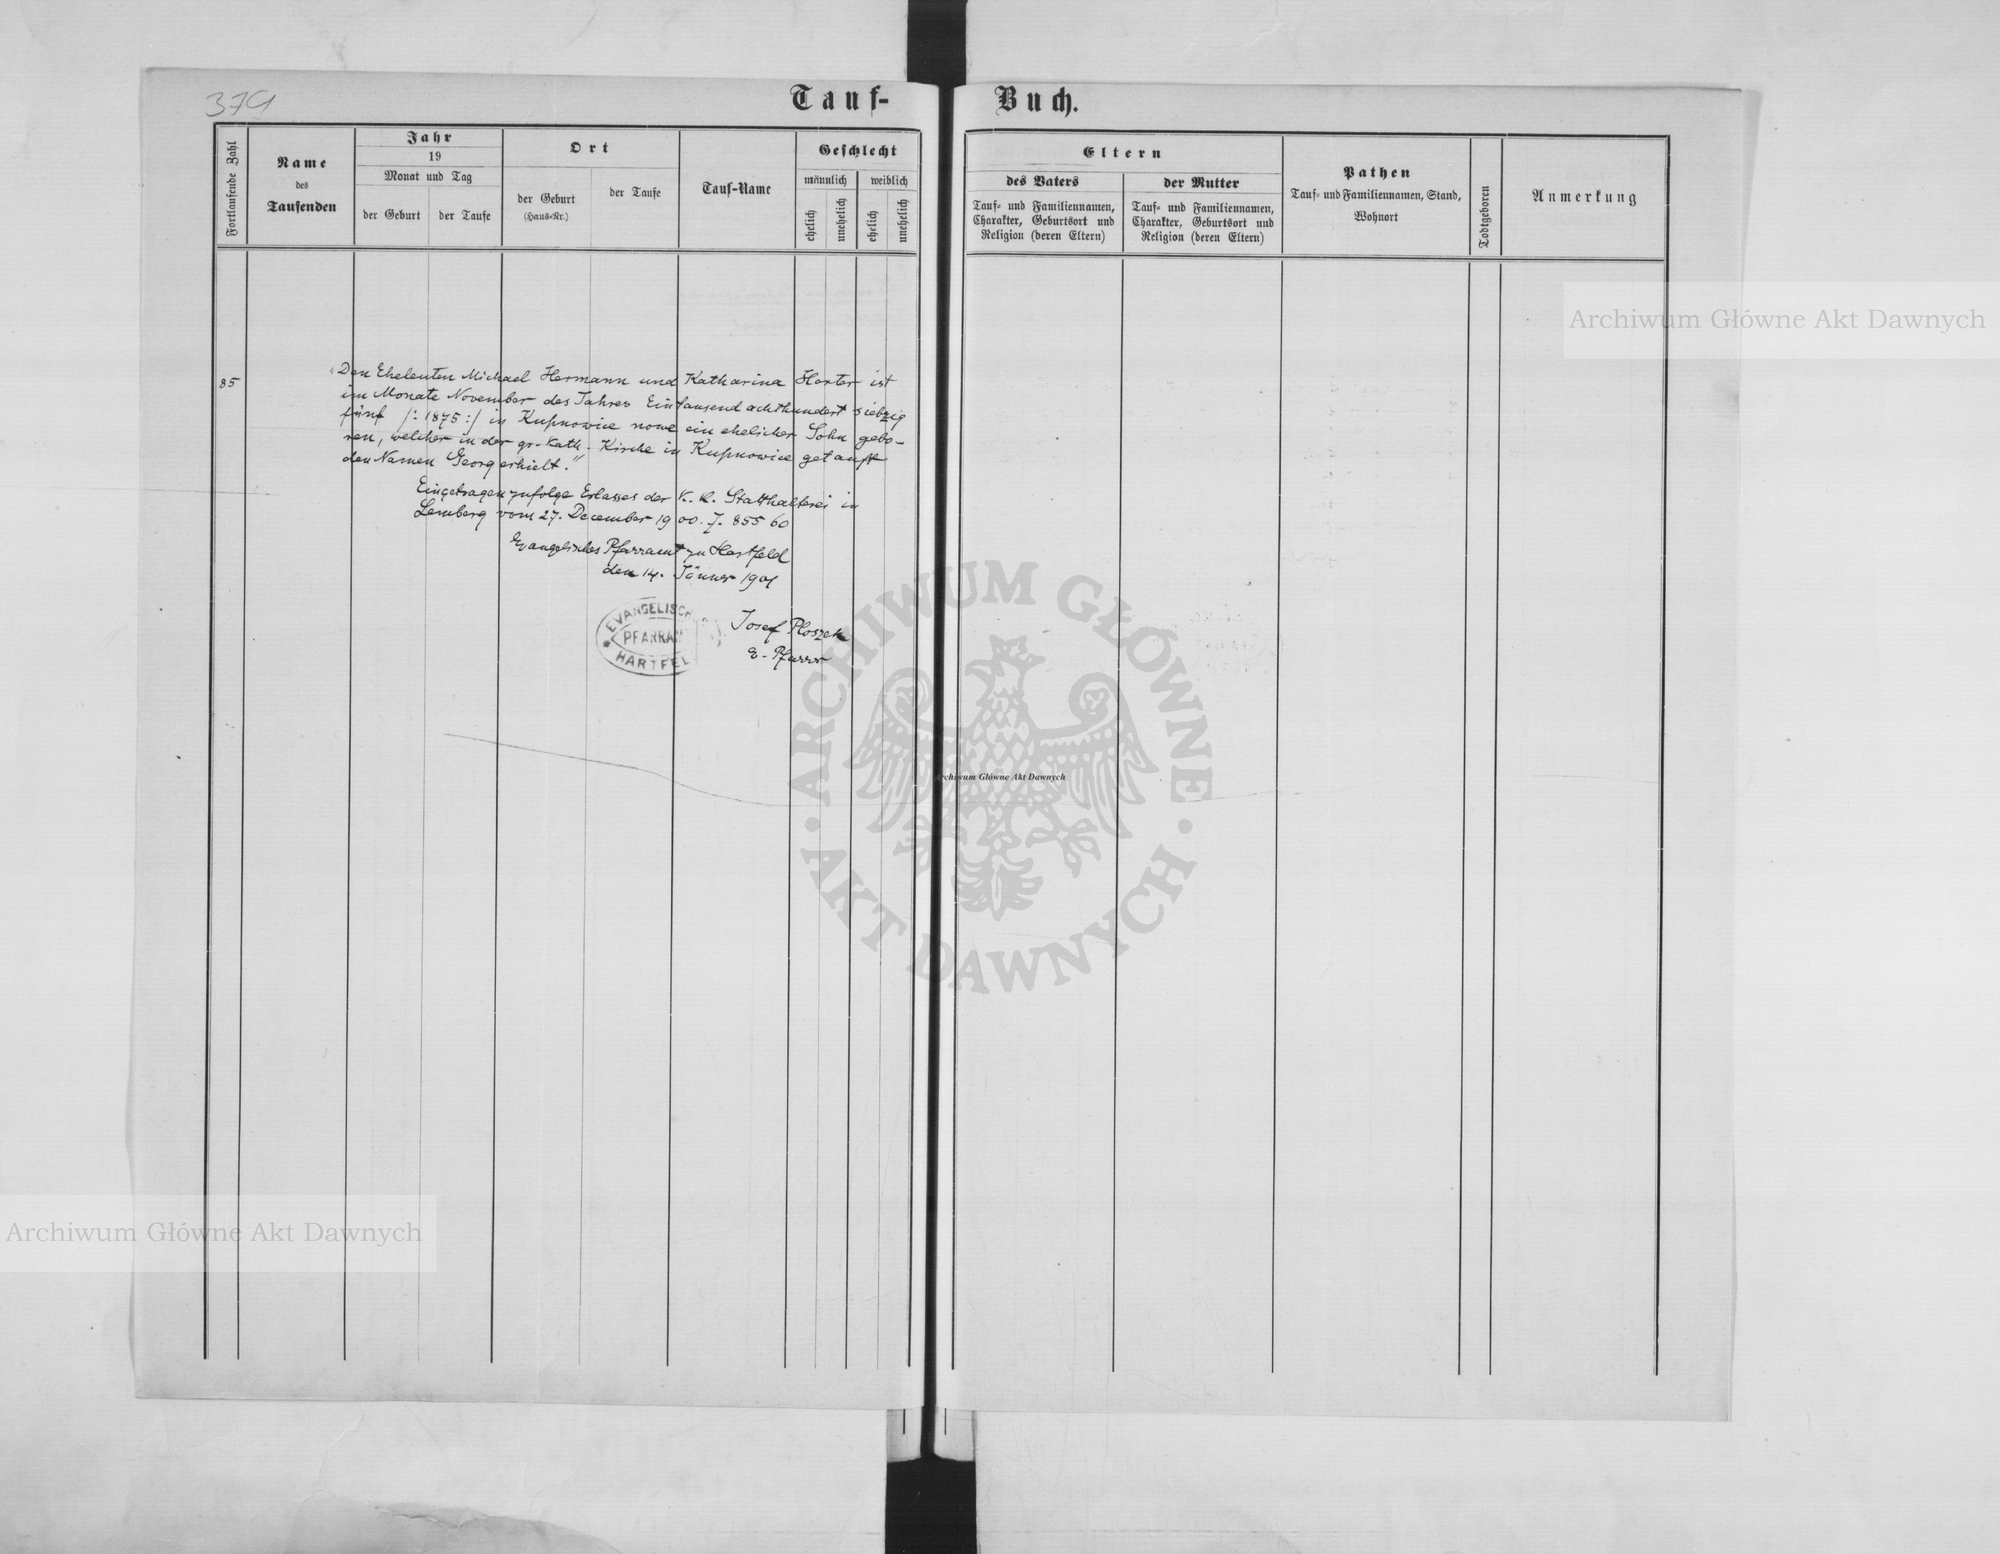 379
Tauf-
Buch.
Fortlaufende Zahl
Name
des
Taufenden
Jahr
19
Monat und Tag
der Geburt
der Taufe
Ort
der Geburt
(Haus-Nr.)
der Taufe
Tauf-Name
Geschlecht
männlich
weiblich
ehelich
unehelich
ehelich
unehelich
Eltern
des Vaters
Tauf- und Familiennamen,
Charakter, Geburtsort und
Religion (deren Eltern)
der Mutter
Tauf- und Familiennamen,
Charakter, Geburtsort und
Religion (deren Eltern)
Pathen
Tauf- und Familiennamen, Stand,
Wohnort
Todtgeboren
Anmerkung
85
„Den Eheleuten Michael Hermann und Katharina Harter ist
im Monate November des Jahres Eintausend achthundert siebzig
fünf /: 1875 :/ in Kupnowice nowe ein ehelicher Sohn gebo-
ren, welcher in der gr.-kath. Kirche in Kupnowice getauft
den Namen Georg erhielt."
Eingetragen zufolge Erlasses der K. K. Statthalterei in
Lemberg vom 27. December 1900. Z. 85560
Evangelisches Pfarramt zu Hartfeld
den 14. Jänner 1901
EVANGELISCH
PFARRAM
HARTFEL
Josef Ploszek
E. Pfarrer
Archiwum Główne Akt Dawnych
ARCHIWUM GŁÓWNE
AKT DAWNYCH
Archiwum Główne Akt Dawnych
Archiwum Główne Akt Dawnych